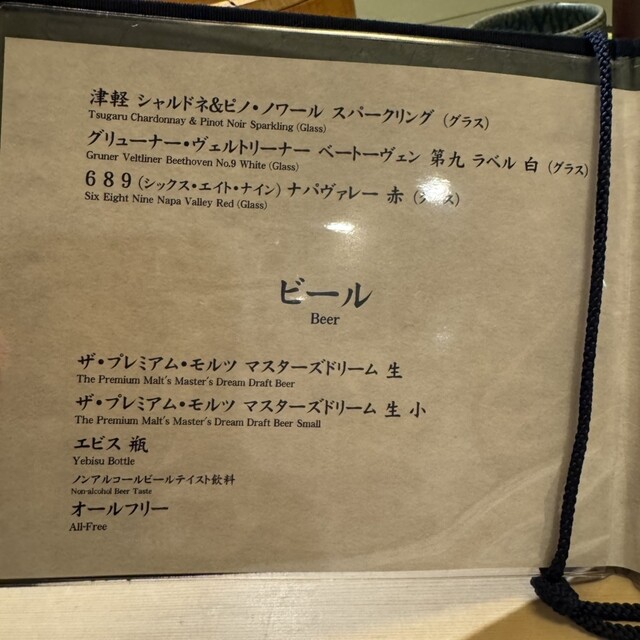 津軽 シャルドネ&ピノ・ノワール スパークリング (グラス)
Tsugaru Chardonnay & Pinot Noir Sparkling (Glass)
グリューナー・ヴェルトリーナー ベートーヴェン 第九 ラベル 白 (グラス)
Gruner Veltliner Beethoven No.9 White (Glass)
６８９ (シックス・エイト・ナイン) ナパヴァレー 赤 (グラス)
Six Eight Nine Napa Valley Red (Glass)
ビール
Beer
ザ・プレミアム・モルツ マスターズドリーム 生
The Premium Malt's Master's Dream Draft Beer
ザ・プレミアム・モルツ マスターズドリーム 生 小
The Premium Malt's Master's Dream Draft Beer Small
エビス 瓶
Yebisu Bottle
ノンアルコールビールテイスト飲料
Non-alcohol Beer Taste
オールフリー
All-Free